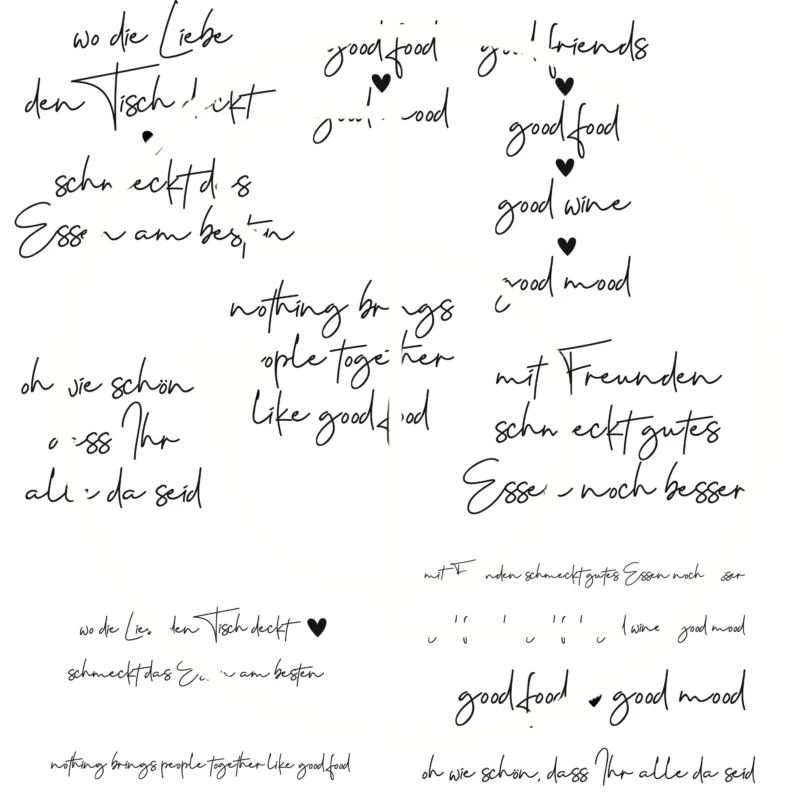 wo die Liebe
den Tisch deckt
♥
schmeckt das
Essen am besten
good food
♥
good mood
good friends
♥
good food
♥
good wine
♥
good mood
nothing brings
people together
like good food
oh wie schön
dass Ihr
alle da seid
mit Freunden
schmeckt gutes
Essen noch besser
mit Freunden schmeckt gutes Essen noch besser
wo die Liebe den Tisch deckt ♥
schmeckt das Essen am besten
wine good mood
good food ♥ good mood
nothing brings people together like good food
oh wie schön, dass Ihr alle da seid